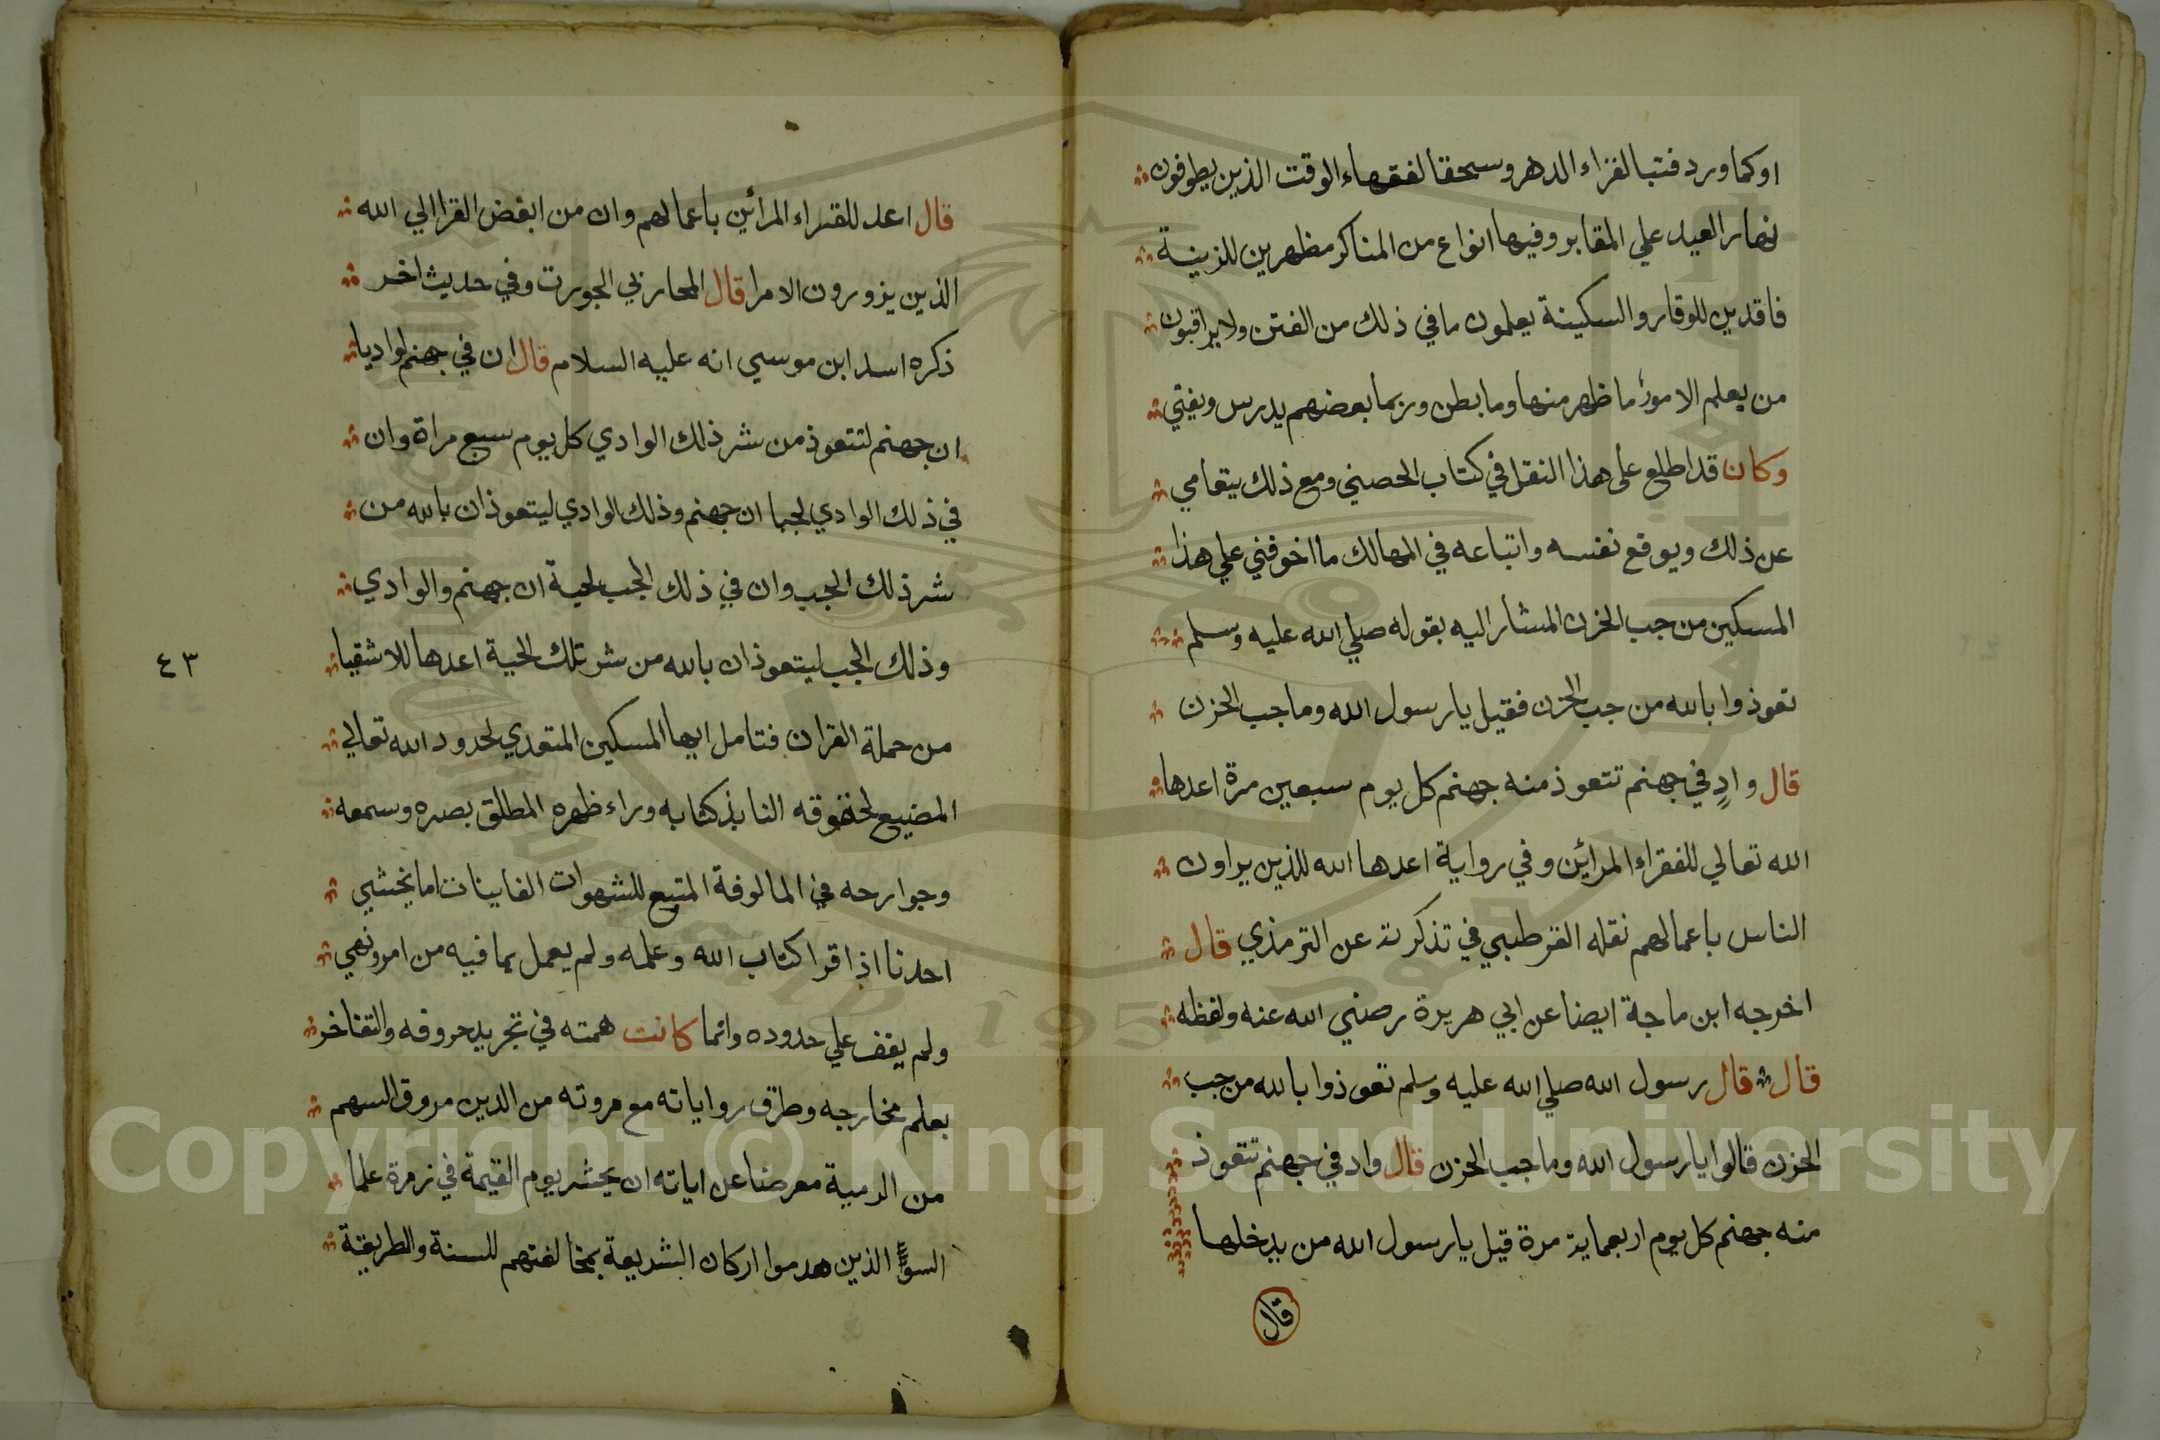 اوكما ورد فتبا لقراء الدهر وسحقا لفقهاء الوقت الذين يطوفون
نهار العيد علي المقابر وفيها انواع من المناكر مظهرين للزينة
فاقدين للوقار والسكينة يعلمون ما في ذلك من الفتن ولا يراقبون
من يعلم الامور ما ظهر منها وما بطن وربما بعضهم يدرس ويفتي
وكان قد اطلع على هذا النقل في كتاب الحصني ومع ذلك يتعامي
عن ذلك ويوقع نفسه واتباعه في المهالك ما اخوفني علي هذا
المسكين من جب الحزن المشار اليه بقوله صلي الله عليه وسلم
تعوذوا بالله من جب الحزن فقيل يا رسول الله وما جب الحزن
قال وادٍ في جهنم تتعوذ منه جهنم كل يوم سبعين مرة اعدها
الله تعالي للفقراء المرائين وفي رواية اعدها الله للذين يراون
الناس باعمالهم نقله القرطبي في تذكرته عن الترمذي قال
اخرجه ابن ماجة ايضا عن ابي هريرة رضي الله عنه ولفظه
قال قال رسول الله صلي الله عليه وسلم تعوذوا بالله من جب
الحزن قالوا يا رسول الله وما جب الحزن قال واد في جهنم تتعوذ
منه جهنم كل يوم اربعماية مرة قيل يا رسول الله من يدخلها
قال
قال اعد للقراء المرائين باعمالهم وان من ابغض القرا الي الله
الذين يزورون الامرا قال المحاربي الجورت وفي حديث اخر
ذكره اسد ابن موسي انه عليه السلام قال ان في جهنم لواديا
ان جهنم لتتعوذ من شر ذلك الوادي كل يوم سبع مراة وان
في ذلك الوادي لجبا ان جهنم وذلك الوادي ليتعوذان بالله من
شر ذلك الجب وان في ذلك الجب لحية ان جهنم والوادي
وذلك الجب ليتعوذان بالله من شر تلك الحية اعدها للاشقيا
من حملة القران فتامل ايها المسكين المتعدي لحدود الله تعالي
المضيع لحقوقه النابذ كتابه وراء ظهره المطلق بصره وسمعه
وجوارحه في المالوفة المتبع للشهوات الفاينات اما يخشي
احدنا اذا قرا كتاب الله وعلمه ولم يعمل بما فيه من امر ونهي
ولم يقف علي حدوده وانما كانت همته في تجريد حروفه والتفاخر
بعلم مخارجه وطرق رواياته مع مروته من الدين مروق السهم
من الرمية معرضا عن اياته ان يحشر يوم القيمة في زمرة علما
السوء الذين هدموا اركان الشريعة بمخالفتهم للسنة والطريقة
٤٣
Copyright © King Saud University
1957